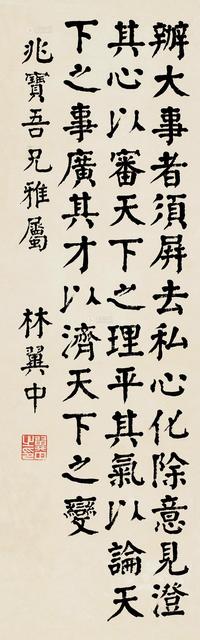 辦大事者須屏去私心化除意見澄
其心以審天下之理平其氣以論天
下之事廣其才以濟天下之變
兆寶吾兄雅屬
林翼中